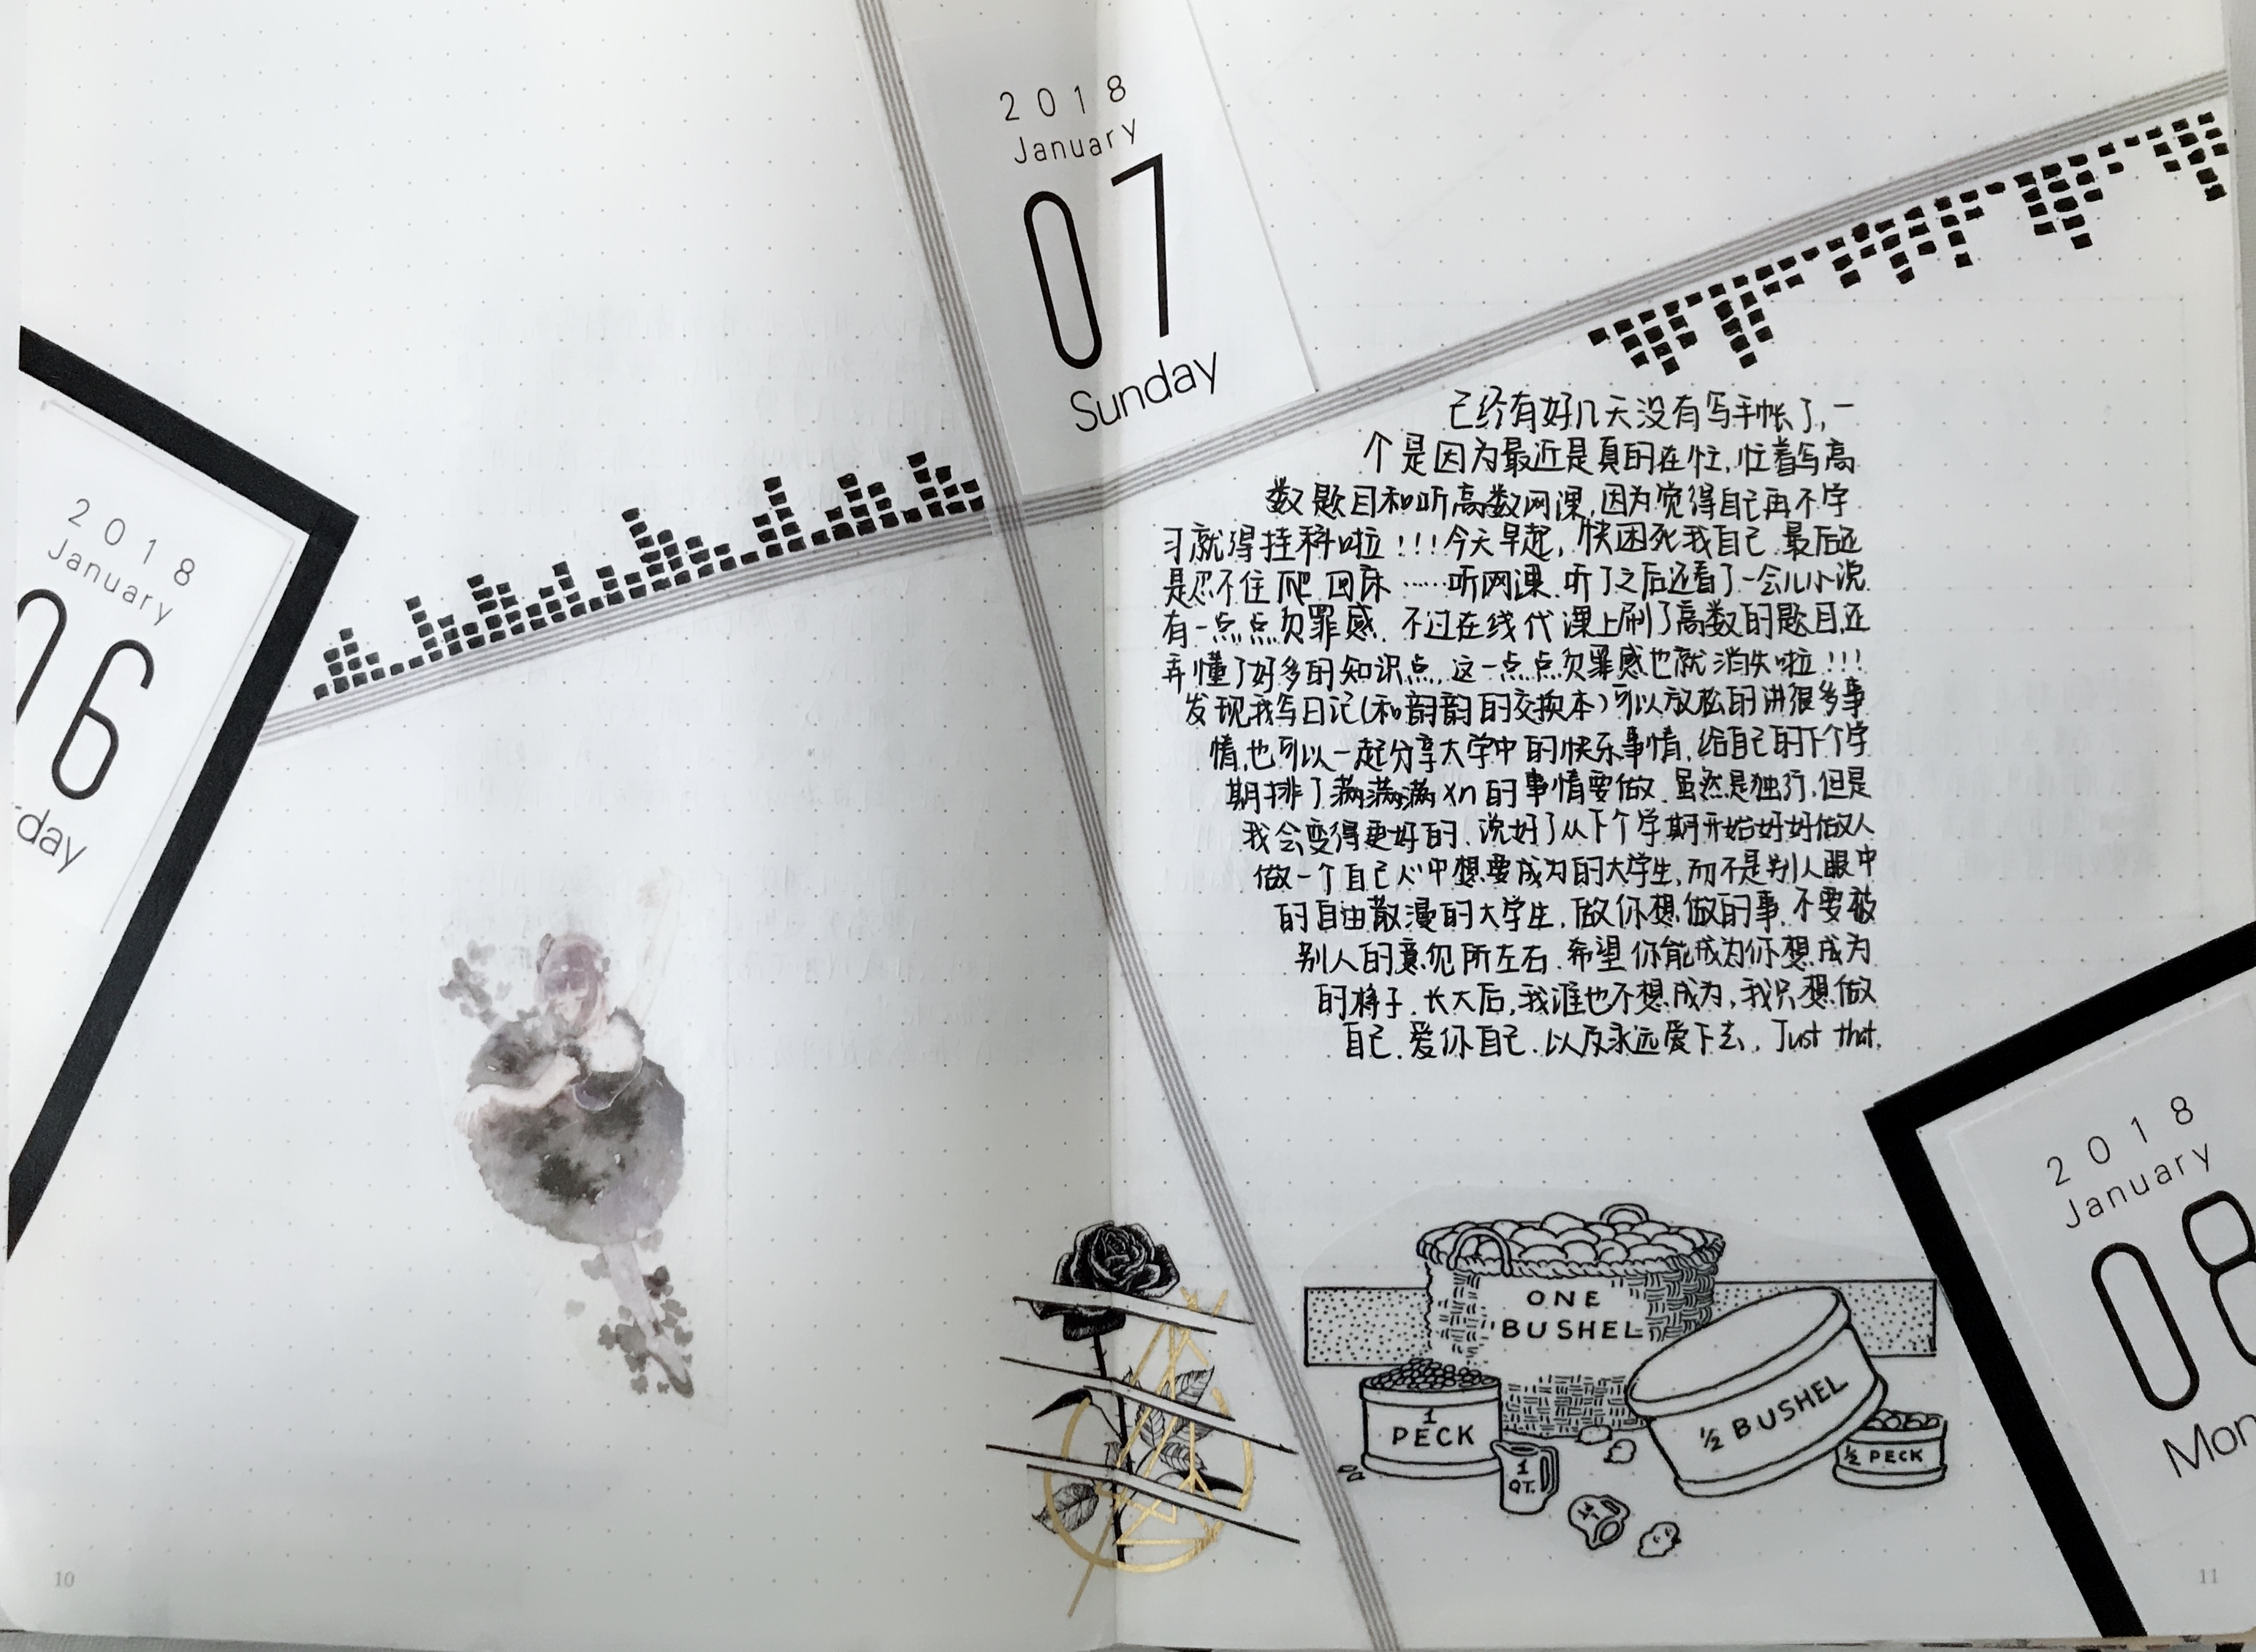 2018
January
06
rday
2018
January
07
Sunday
已经有好几天没有写手帐了,一
个是因为最近是真的在忙,忙着写高
数题目和听高数网课,因为觉得自己再不学
习就得挂科啦!!!今天早起,快困死我自己.最后还
是忍不住爬回床……听网课.听了之后还看了一会儿小说.
有一点点负罪感.不过在线代课上刷了高数的题目,还
弄懂了好多的知识点,这一点点负罪感也就消失啦!!!
发现我写日记(和韵韵的交换本)可以放松的讲很多事
情,也可以一起分享大学中的快乐事情,给自己的下个学
期排了满满满xn的事情要做.虽然是独行,但是
我会变得更好的.说好了从下个学期开始好好做人
做一个自己心中想要成为的大学生,而不是别人眼中
的自由散漫的大学生.做你想做的事.不要被
别人的意见所左右.希望你能成为你想成为
的样子.长大后,我谁也不想成为,我只想做
自己.爱你自己.以及永远爱下去. Just that.
2018
January
08
Mon
ONE
BUSHEL
1
PECK
1
QT.
½ BUSHEL
½ PECK
10
11